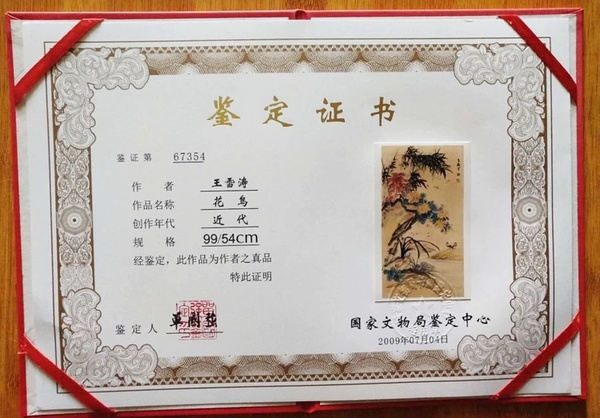 鉴定证书
鉴证第 67354
作者 王雪涛
作品名称 花鸟
创作年代 近代
规格 99/54cm
经鉴定,此作品为作者之真品
特此证明
鉴定人 单国强
国家文物局鉴定中心
2009年07月04日